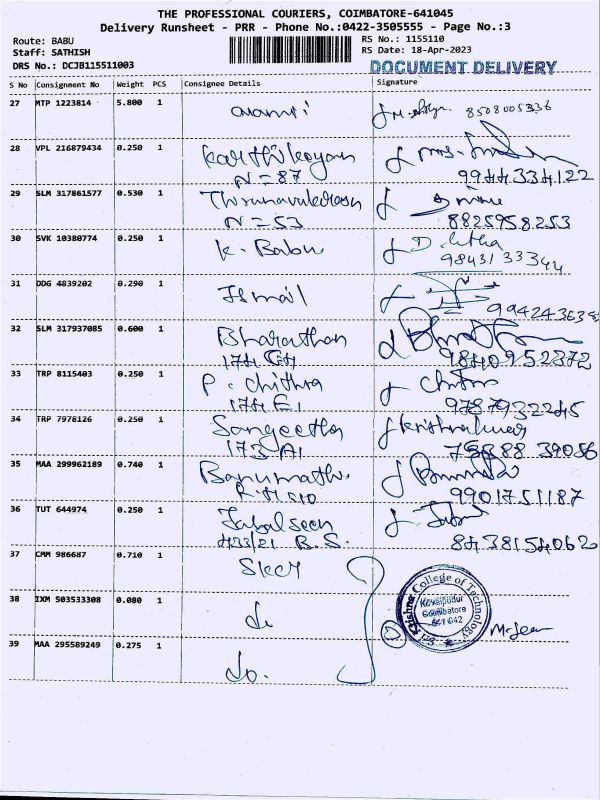 THE PROFESSIONAL COURIERS, COIMBATORE-641045
Delivery Runsheet - PRR - Phone No.:0422-3505555 - Page No.:3
Route: BABU
Staff: SATHISH
DRS No.: DCJB115511003
RS No.: 1155110
RS Date: 18-Apr-2023
DOCUMENT DELIVERY
S No Consignment No Weight PCS Consignee Details Signature
27 MTP 1223814 5.800 1 8508005336
28 VPL 216879434 0.250 1 Karthikeyan
N=87 9944334122
29 SLM 317861577 0.530 1 Thirunavukkarasu
N=53 8825958253
30 SVK 10380774 0.250 1 K. Babu D. Latha
9843133344
31 DDG 4839202 0.290 1 Ismail
32 SLM 317937085 0.600 1 Bharathan
9840952372
33 TRP 8115403 0.250 1 P. Chithra Chitra
174 E1 9787932245
34 TRP 7978126 0.250 1 Sangeetha Krishnakumar
173 A1
35 MAA 299962189 0.740 1 Banumathi
9901751187
36 TUT 644974 0.250 1
433/21 B.S. 8438154062
37 CMM 986687 0.710 1 SKCT
38 IXM 503533308 0.080 1
39 MAA 295589249 0.275 1 do.
Sri Krishna College of Technology
Kovaipudur
Coimbatore
641 042